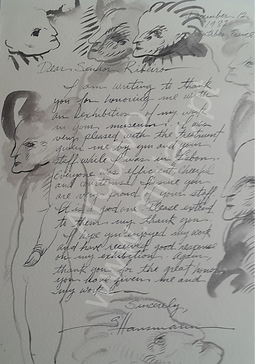 December 12,
1987
Dear Senhor Ribeiro
I am writing to thank
you for honoring me with
an exhibition of my work
in your museum. I was
very pleased with the treatment
given me by you and your
staff while I was in Lisbon.
Everyone is efficient, cheerful
and courteous. I'm sure you
are very proud of your staff
Please extend
to them my thank you.
I hope you enjoyed my work
and have received good response
on my exhibition. Again,
thank you for the great honor
you have given me and
my work.
Sincerely,
S Hausmann